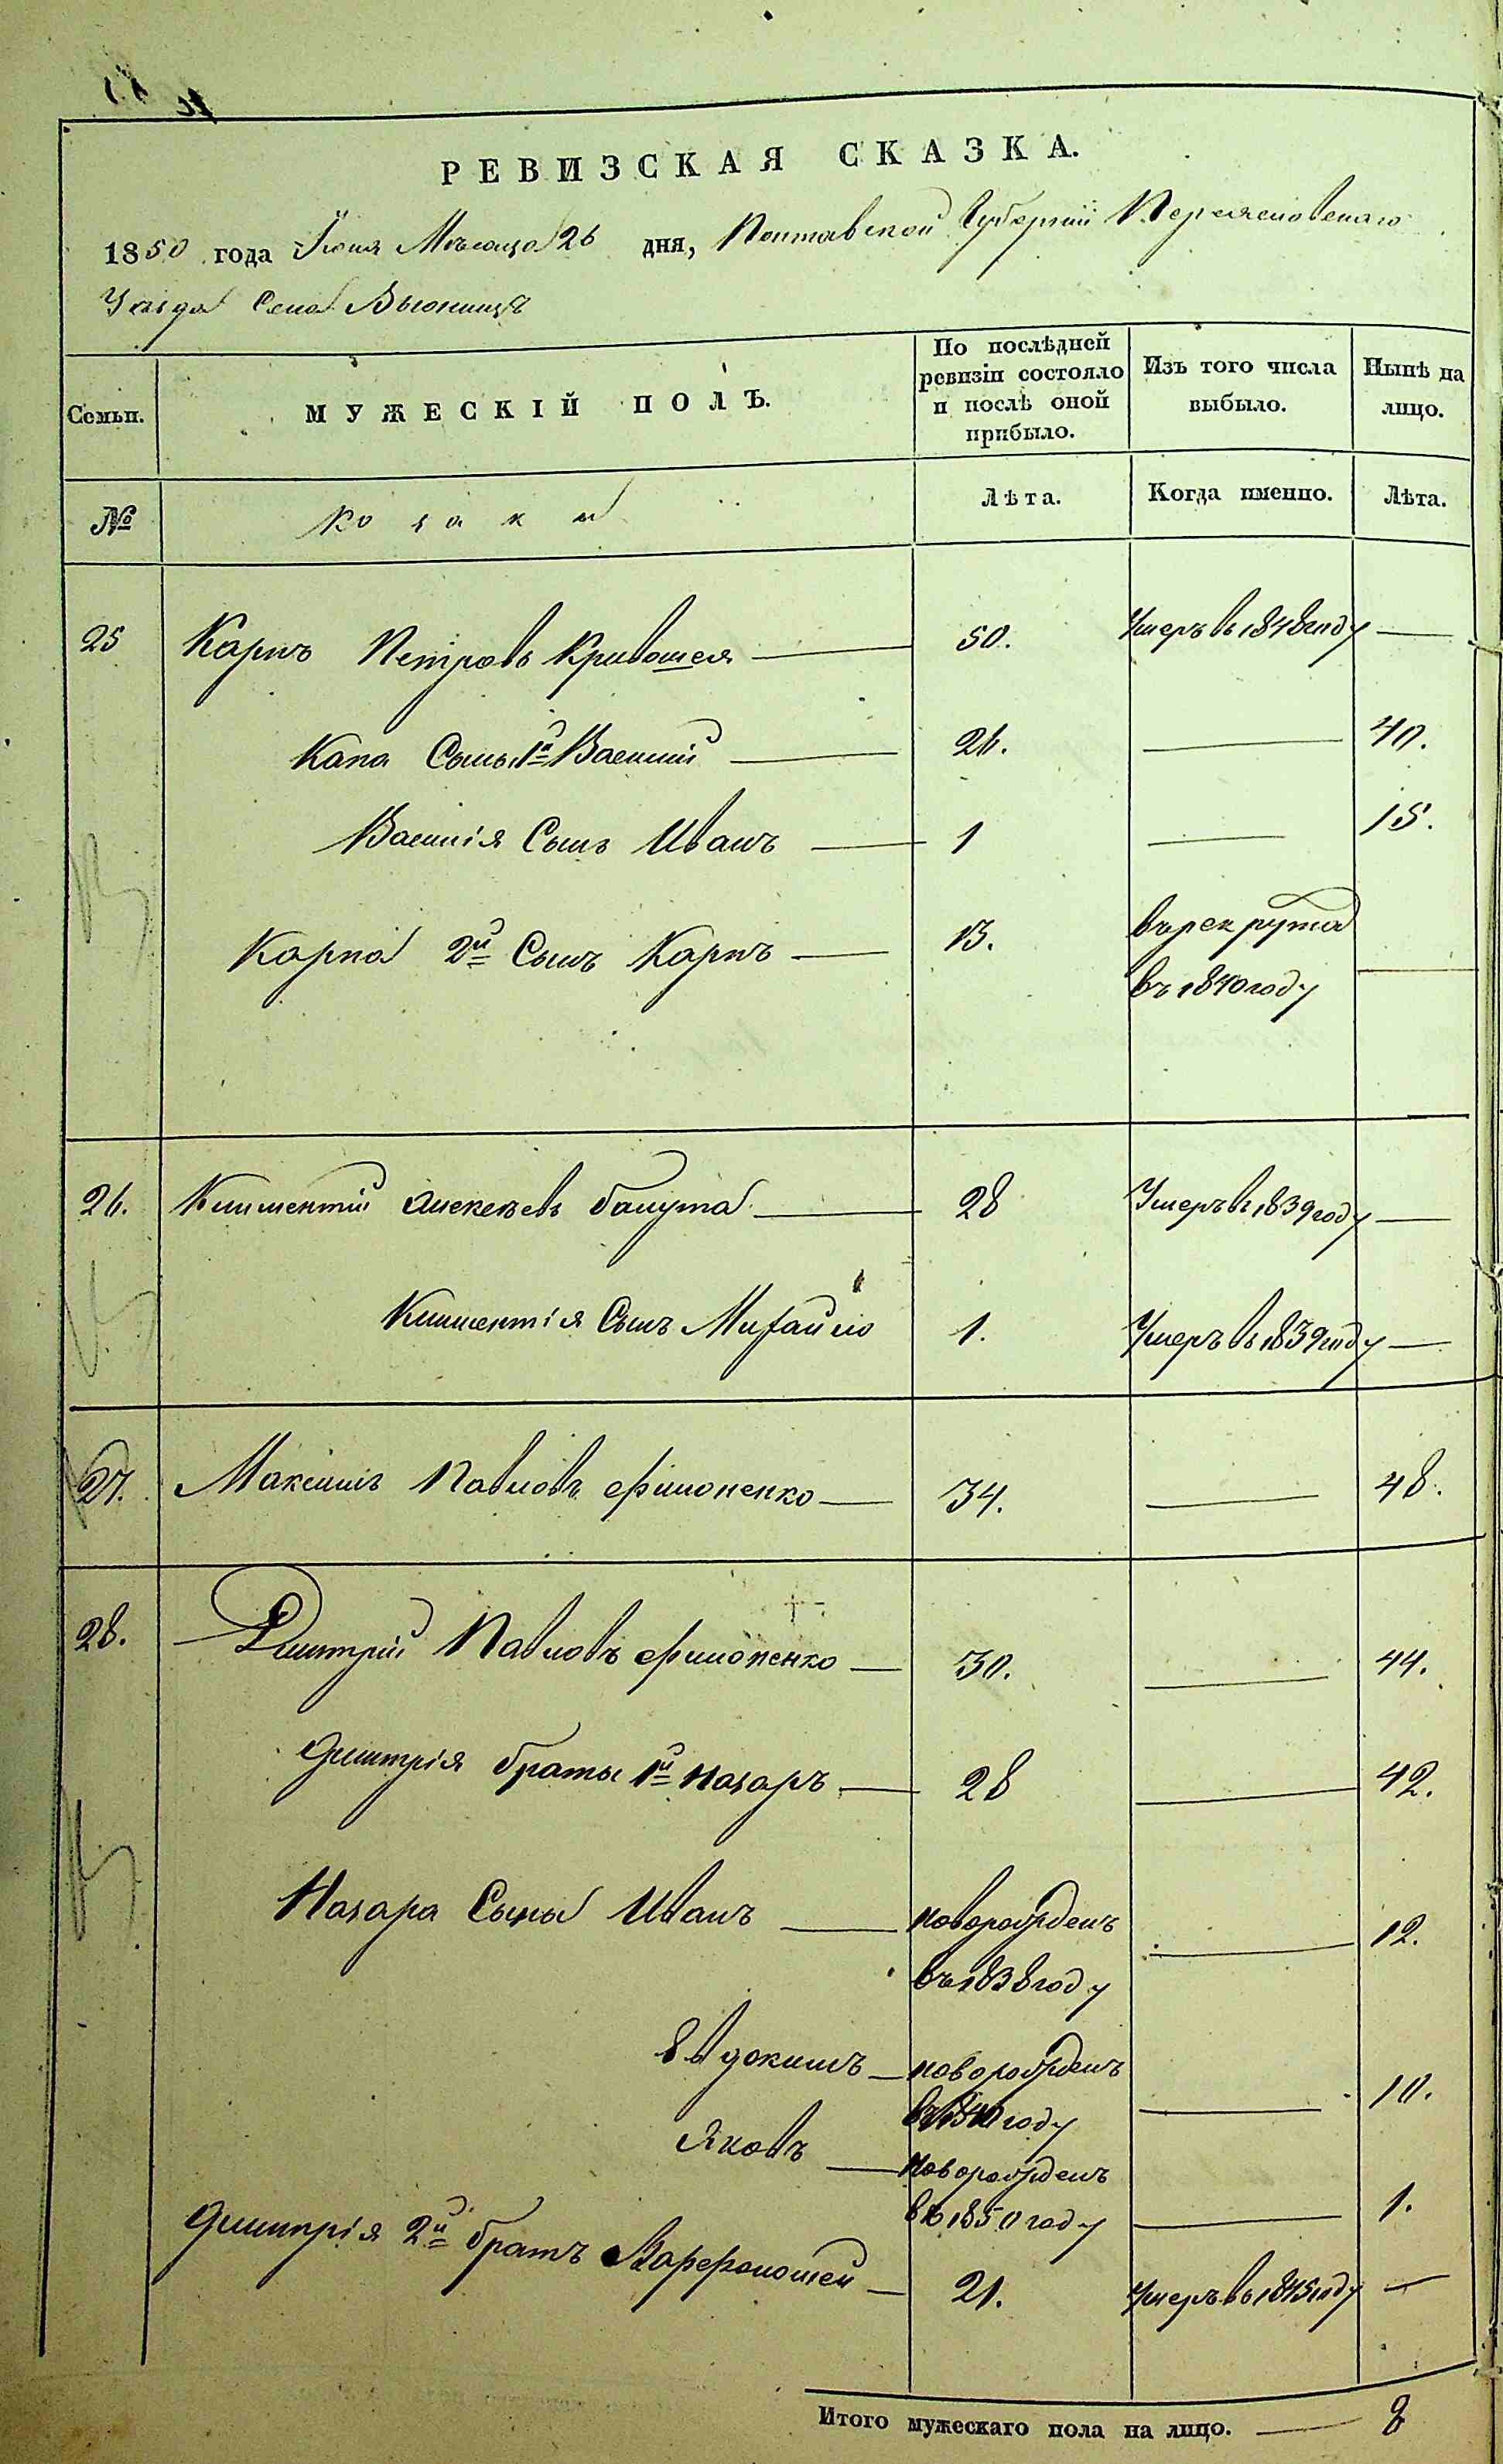 РЕВИЗСКАЯ СКАЗКА.
1850 года Июня Месяца 26 дня, Полтавской Губернии Переяславскаго
Уезда Села Вьюнищъ
Семьи. МУЖЕСКІЙ ПОЛЪ. По послѣдней ревизіи состояло и послѣ оной прибыло. Изъ того числа выбыло. Нынѣ на лицо.
№ Козаки Лѣта. Когда именно. Лѣта.
25 Карпъ Петровъ Кривошея — 50. Умеръ въ 1848 году —
Капа Сыны 1й Василий — 26. — 40.
Василія Сынъ Иванъ — 1 — 15.
Карпа 2й Сынъ Карпъ — 13. въ рекрута
въ 1840 году —
26. Климентий Алексеевъ балута — 28 Умеръ въ 1839 году —
Климентія Сынъ Михайло 1. Умеръ въ 1839 году —
27. Максимъ Павловъ Филоненко — 34. — 48.
28. Дмитрий Павловъ Филоненко — 30. — 44.
Дмитрія браты 1й Назаръ — 28 — 42.
Назара Сыны Иванъ — новорожденъ — 12.
въ 1838 году
Евдокимъ — новорожденъ — 10.
въ 1840 году
Яковъ — новорожденъ
въ 1850 году — 1.
Дмитрія 2й братъ Варфоломей — 21. Умеръ въ 1845 году —
Итого мужескаго пола на лицо. — 8